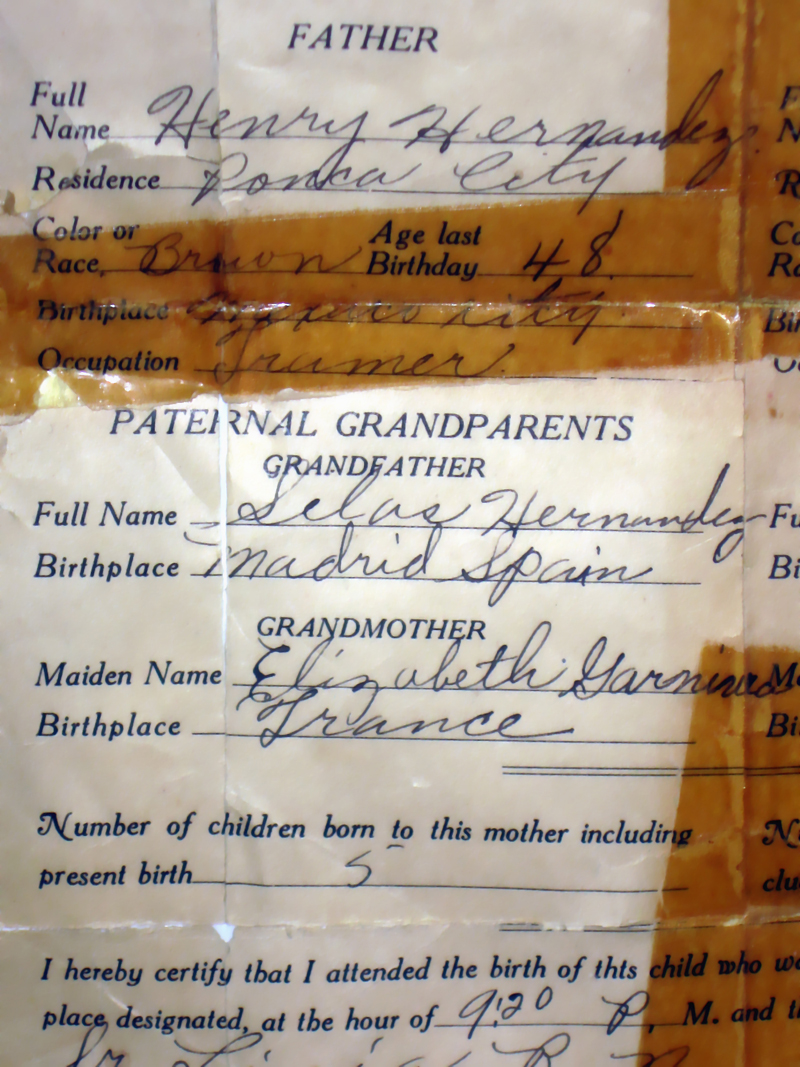 FATHER
Full
Name Henry Hernandez
Residence Ponca City
Color or
Race, Brown Age last Birthday 48
Birthplace Mexico City
Occupation
PATERNAL GRANDPARENTS
GRANDFATHER
Full Name Selas Hernandez
Birthplace Madrid Spain
GRANDMOTHER
Maiden Name Elizabeth
Birthplace France
Number of children born to this mother including
present birth 5
I hereby certify that I attended the birth of this child who
place designated, at the hour of 9:20 P. M. and